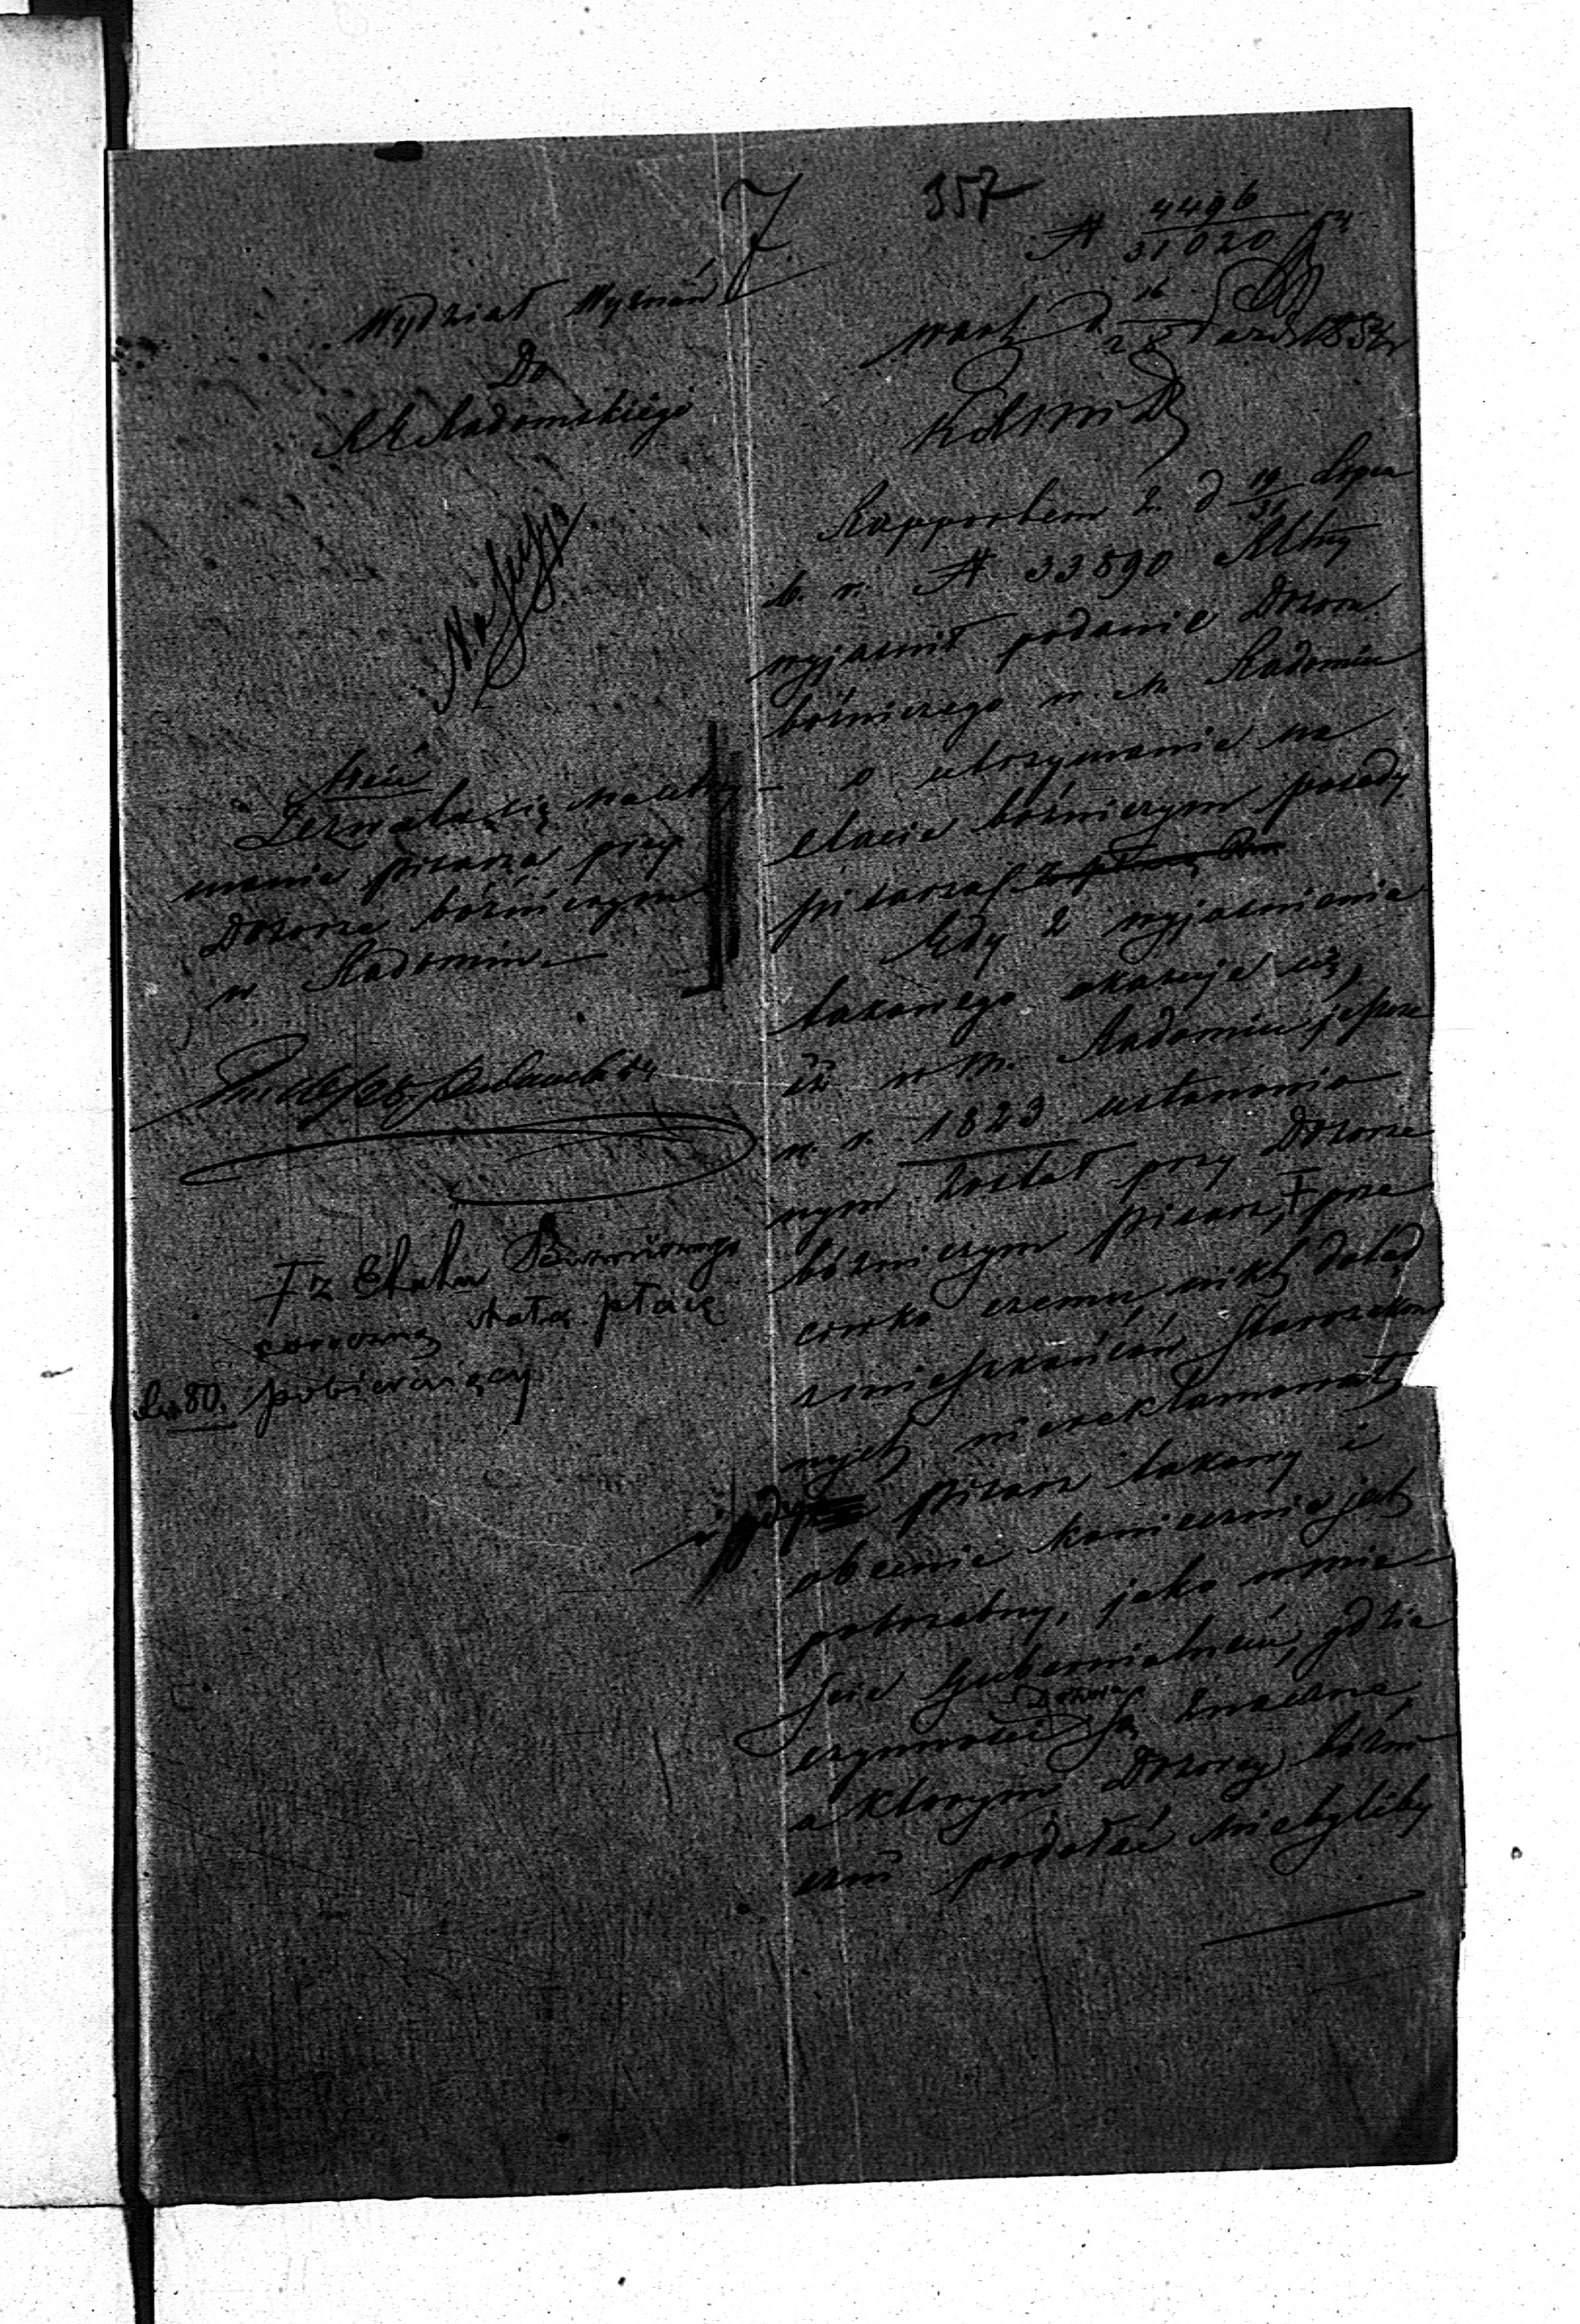 357
7.
№ 4496/31020 /54
Wydział Wyznań
Do
RG Radomskiego
Warsz d. 16/28 Paźdz 1854 r
KRSW i D
Rapportem z d 19/31 Lipca
b. r. № 33590
wyjaśnił podanie Dozoru
bóżniczego w m. Radomiu
o utrzymanie na
etacie bóżniczym posady
pisarza
Gdy z wyjaśnienia
takowego okazuje się,
iż w m. Radomiu jeszcze
w r. 1823 ustanowio
nym został przy Dozorze
bóżniczym pisarz, Ŧ prze
ciwko czemu nikt dotąd
z mieszkańców Starozakon
nych niereklamował,
i gdy pisarz takowy i
obecnie koniecznie jest
potrzebny, jako w mie
ście Gubernialném, gdzie
czynności Dozoru są znaczne
a którym Dozorcy bóżni
czni podołać niebyliby
Treść
Zezwala się na utrzy-
manie pisarza przy
Dozorze bóżniczym
w Radomiu
Ŧ z Etatu Bóżniczego
coroczną stałą płacę
rs. 80. pobierający